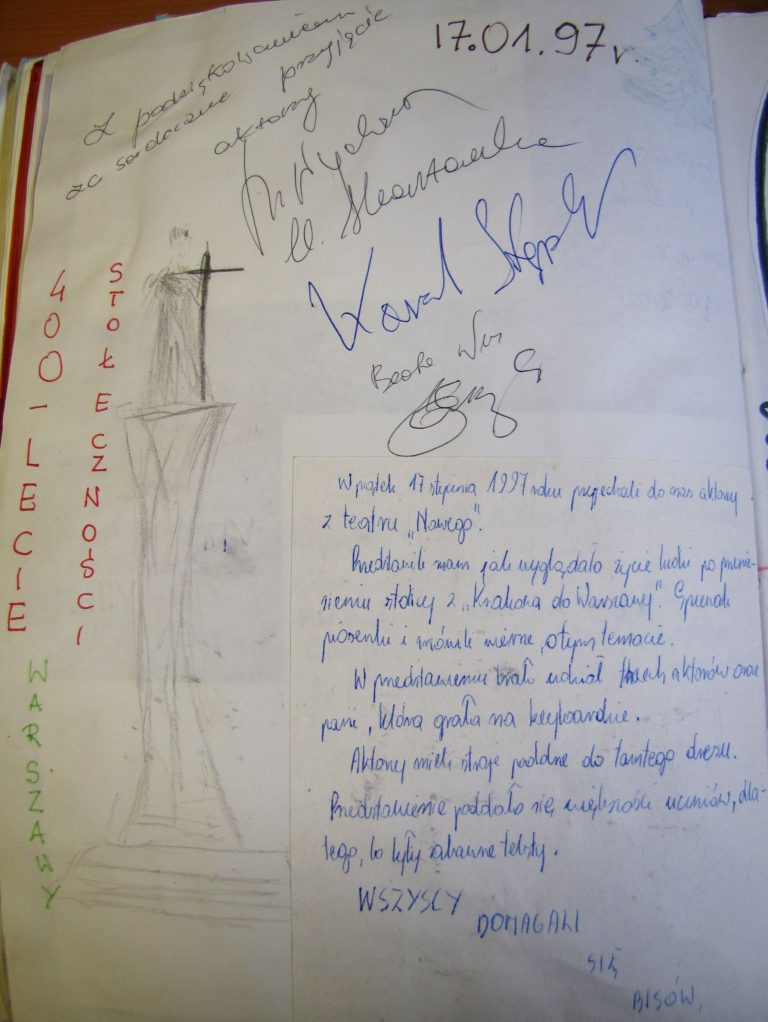 17.01.97r.
Z podziękowaniem
za serdeczne przyjęcie
aktorzy
Karol Stęp
Beata
400-LECIE
STOŁECZNOŚCI
WARSZAWY
W piątek 17 stycznia 1997 roku przyjechali do nas aktorzy
z teatru „Nowego".
Przedstawili nam jak wyglądało życie ludzi po przenie-
sieniu stolicy z „Krakowa do Warszawy". Śpiewali
piosenki i mówili wiersze, o tym temacie.
W przedstawieniu brało udział trzech aktorów oraz
pani, która grała na keyboardzie.
Aktorzy mieli stroje podobne do tamtego okresu.
Przedstawienie podobało się większości uczniów, dla-
tego, bo były zabawne teksty.
WSZYSCY
DOMAGALI
SIĘ
BISÓW.